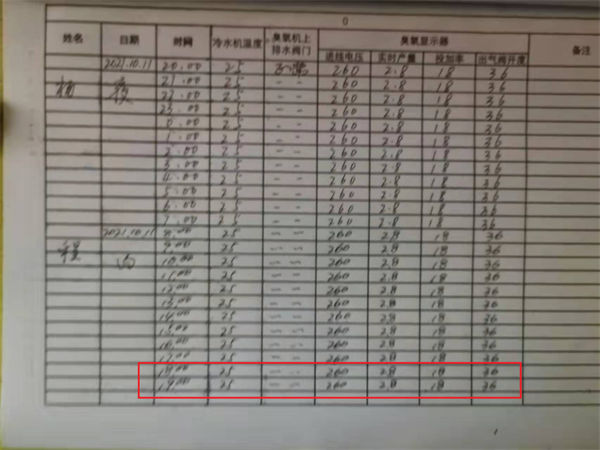 0
姓名 日期 时间 冷水机温度 臭氧机上排水阀门 臭氧显示器 备注
进线电压 实时产量 投加率 出气阀开度
2021.10.11 20:00 25 260 2.8 18 36
杨 夜 21:00 25 - - 260 2.8 18 36
22:00 25 - - 260 2.8 18 36
23:00 25 - - 260 2.8 18 36
0:00 25 - - 260 2.8 18 36
1:00 25 - - 260 2.8 18 36
2:00 25 - - 260 2.8 18 36
3:00 25 - - 260 2.8 18 36
4:00 25 - - 260 2.8 18 36
5:00 25 - - 260 2.8 18 36
6:00 25 - - 260 2.8 18 36
7:00 25 - - 260 2.8 18 36
8:00 25 - - 260 2.8 18 36
程 白 9:00 25 - - 260 2.8 18 36
10:00 25 - - 260 2.8 18 36
11:00 25 - - 260 2.8 18 36
12:00 25 - - 260 2.8 18 36
13:00 25 - - 260 2.8 18 36
14:00 25 - - 260 2.8 18 36
15:00 25 - - 260 2.8 18 36
16:00 25 - - 260 2.8 18 36
17:00 25 - - 260 2.8 18 36
18:00 25 - - 260 2.8 18 36
19:00 25 - - 260 2.8 18 36